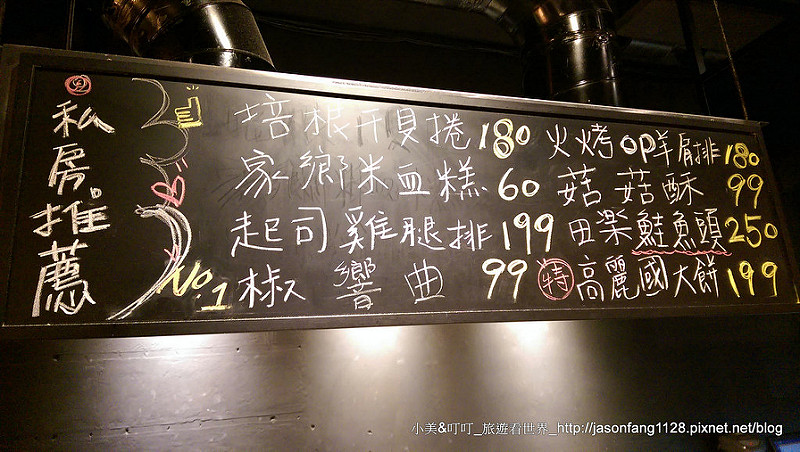 私房推薦
No.1
培根干貝捲180
家鄉米血糕60
起司雞腿排199
椒響曲99
火烤op羊肩排180
菇菇酥99
田樂鮭魚頭250
特高麗國大餅199
小美&叮叮_旅遊看世界_http://jasonfang1128.pixnet.net/blog